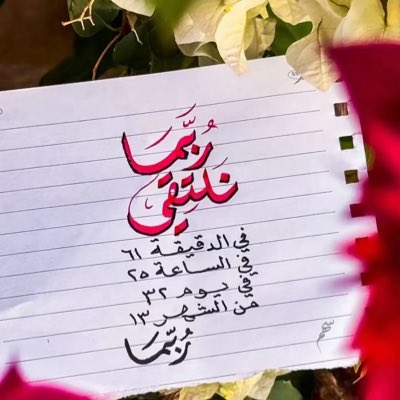 رُبَّما
نلتقي
في الدقيقة ٦١
في الساعة ٢٥
في يوم ٣٢
من الشهر ١٣
رُبَّما